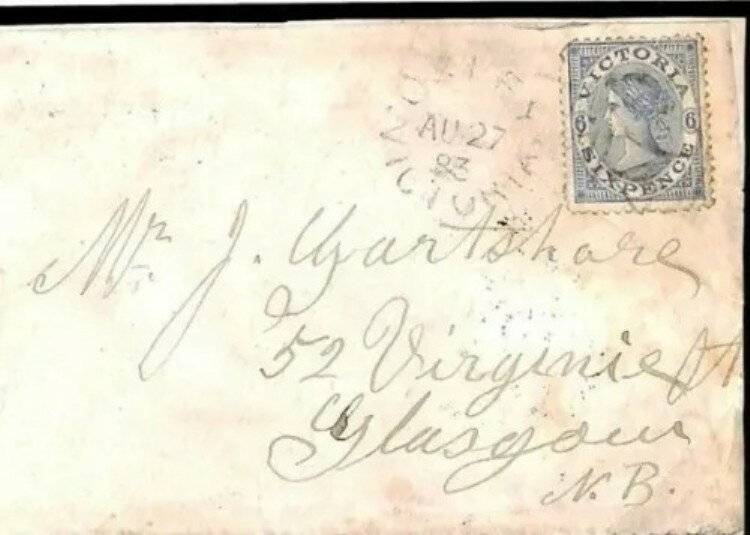 VICTORIA
6 6
SIXPENCE
AU 27
83
VICTORIA
Mr. J. Gartshore
52 Virginia St
Glasgow
N.B.